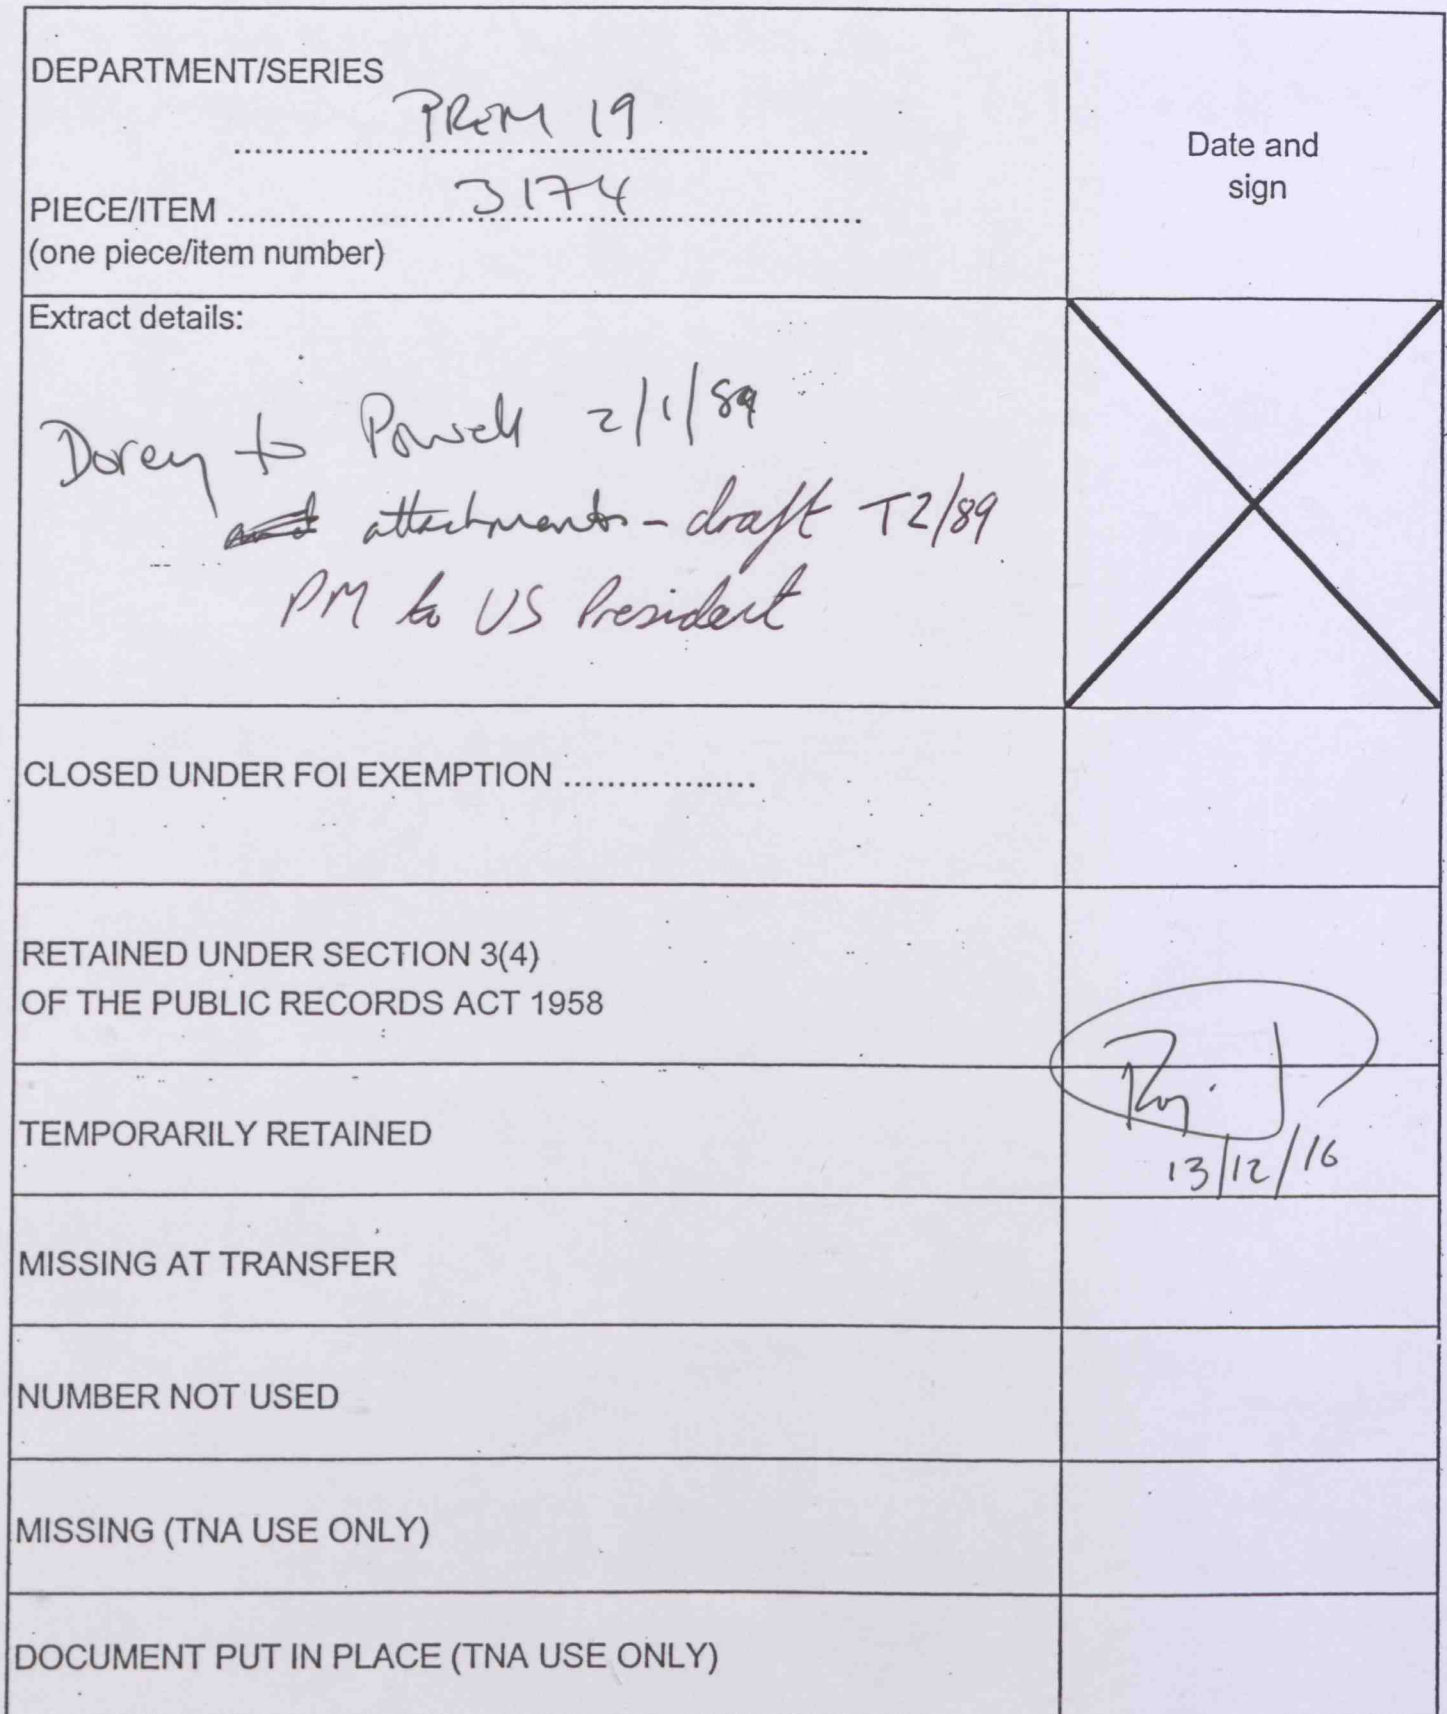 DEPARTMENT/SERIES
PREM 19
Date and
sign
PIECE/ITEM .......... 3174 ..........
(one piece/item number)
Extract details:
Dorey to Powell 2/1/89
and attachments - draft T2/89
PM to US President
CLOSED UNDER FOI EXEMPTION ...................
RETAINED UNDER SECTION 3(4)
OF THE PUBLIC RECORDS ACT 1958
TEMPORARILY RETAINED
13/12/16
MISSING AT TRANSFER
NUMBER NOT USED
MISSING (TNA USE ONLY)
DOCUMENT PUT IN PLACE (TNA USE ONLY)